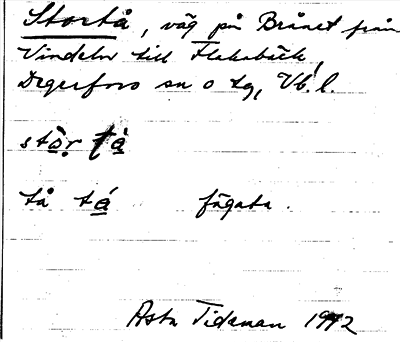 Stortå, väg på Brånet från
Vindeln till Flakabäck,
Degerfors sn o tg, Vb. l.
stọ̀r tà
tå tá fägata.
Asta Tideman 1942